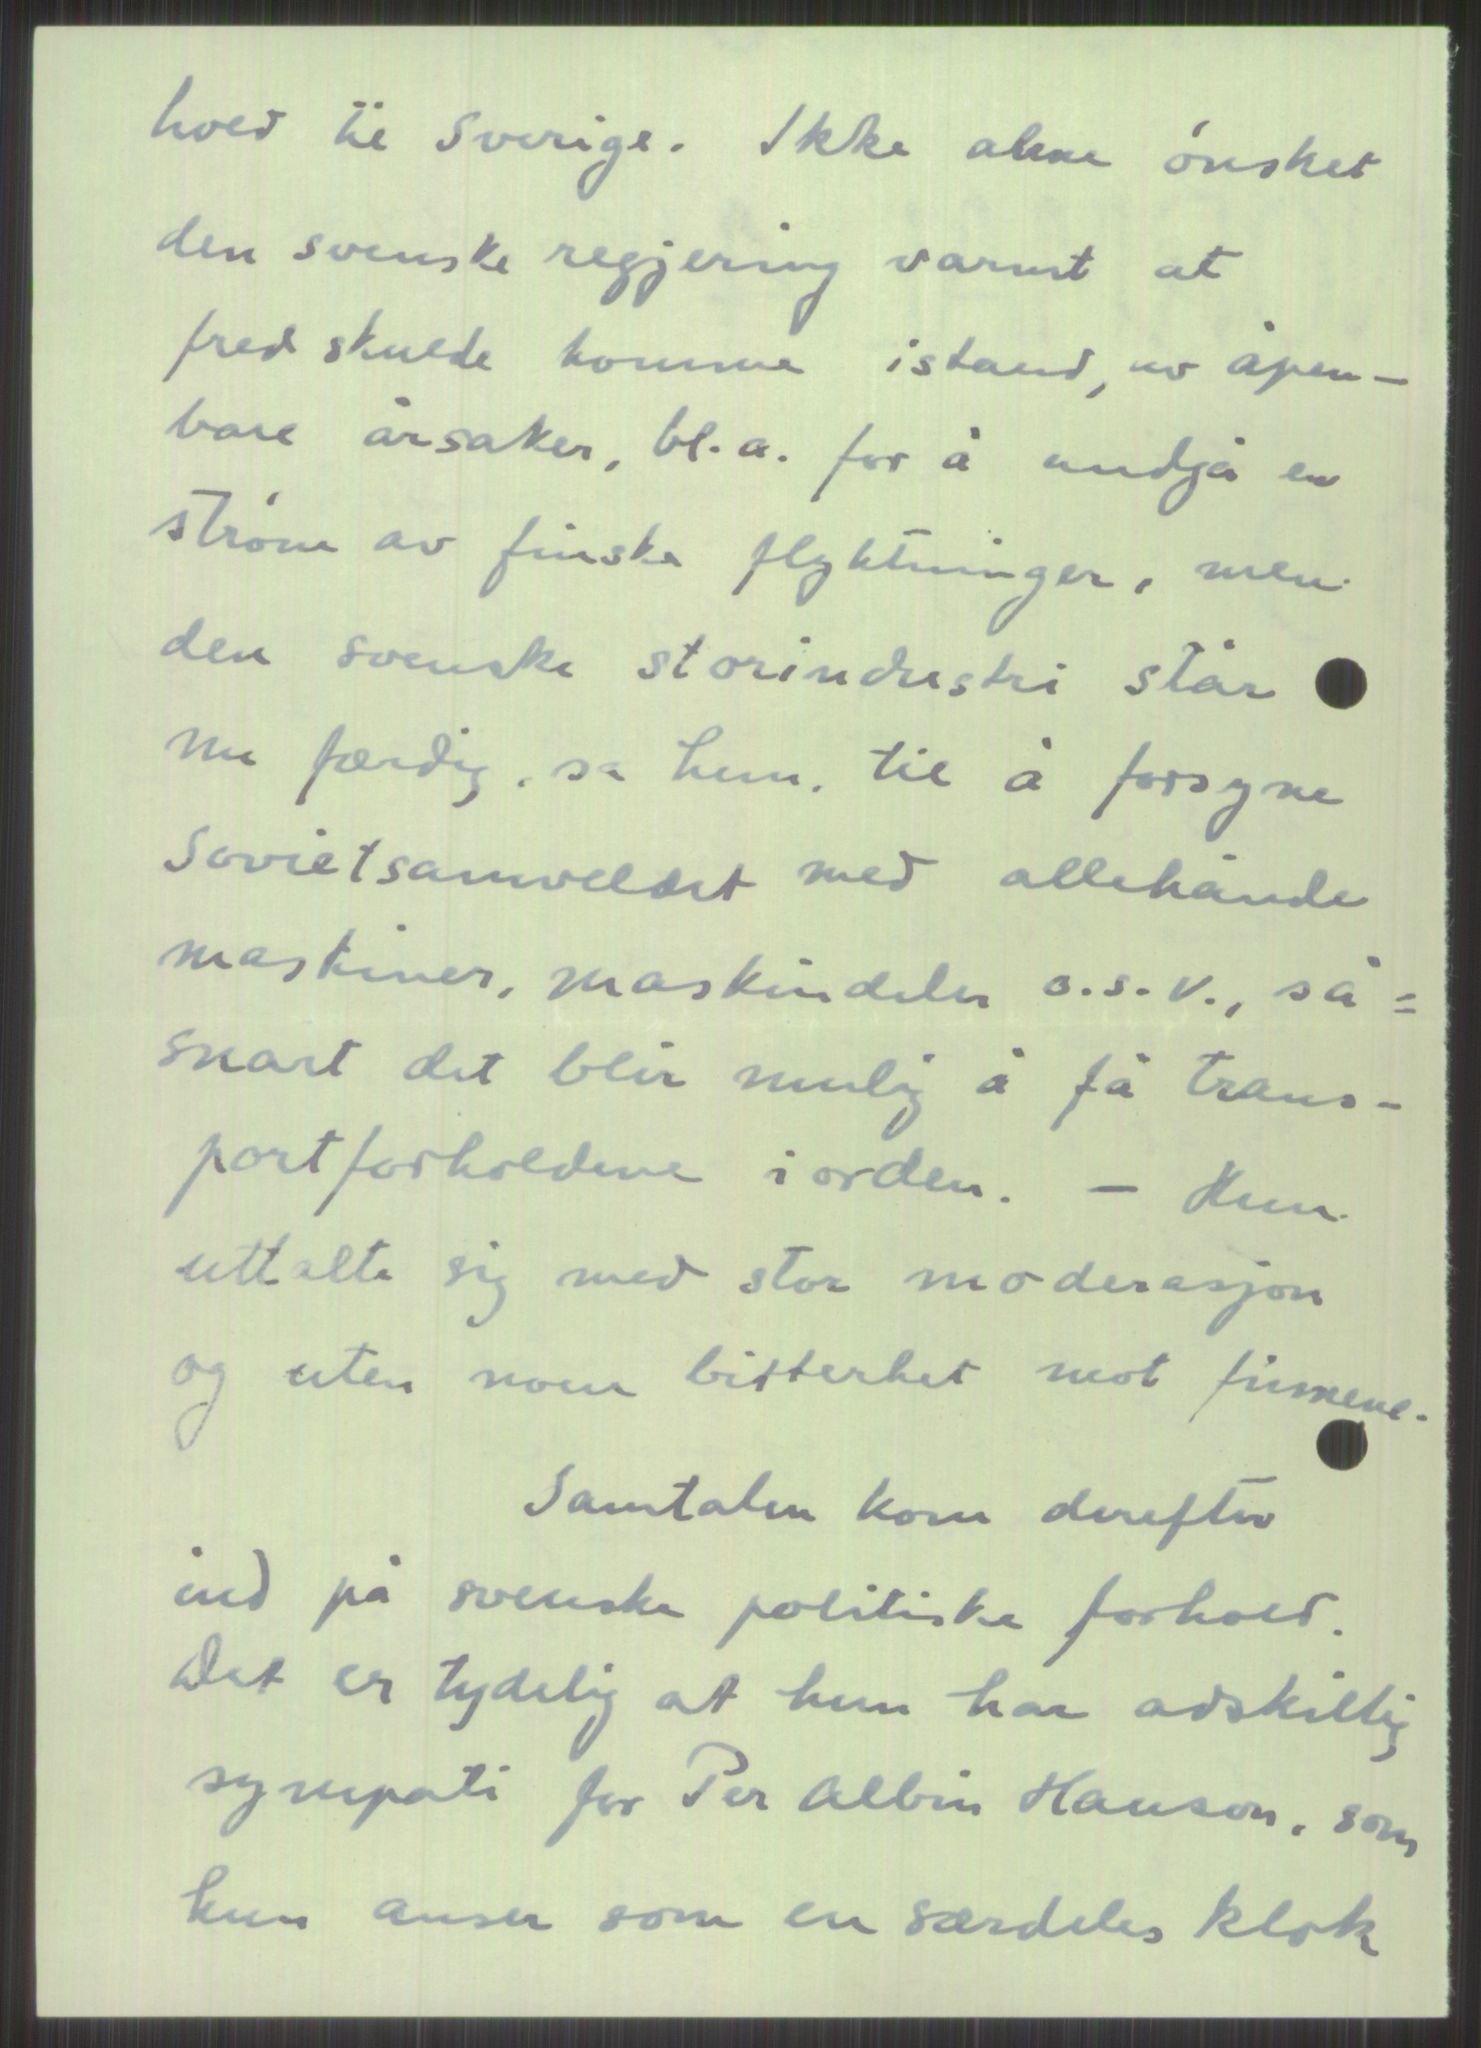 hold til Sverige. Ikke alene ønsket
den svenske regjering varmt at
fred skulde komme istand, av åpen-
bare årsaker, bl.a. for å undgå en
strøm av finske flyktninger, men
den svenske storindustri står
nu færdig, sa hun, til å forsyne
Sovietsamveldet med allehånde
maskiner, maskindeler o.s.v., så=
snart det blir mulig å få trans-
portforholdene i orden. - Hun
uttalte sig med stor moderasjon
og uten noen bitterhet mot finnene.
Samtalen kom derefter
ind på svenske politiske forhold.
Det er tydelig at hun har adskillig
sympati for Per Albin Hanson, som
hun anser som en særdeles klok